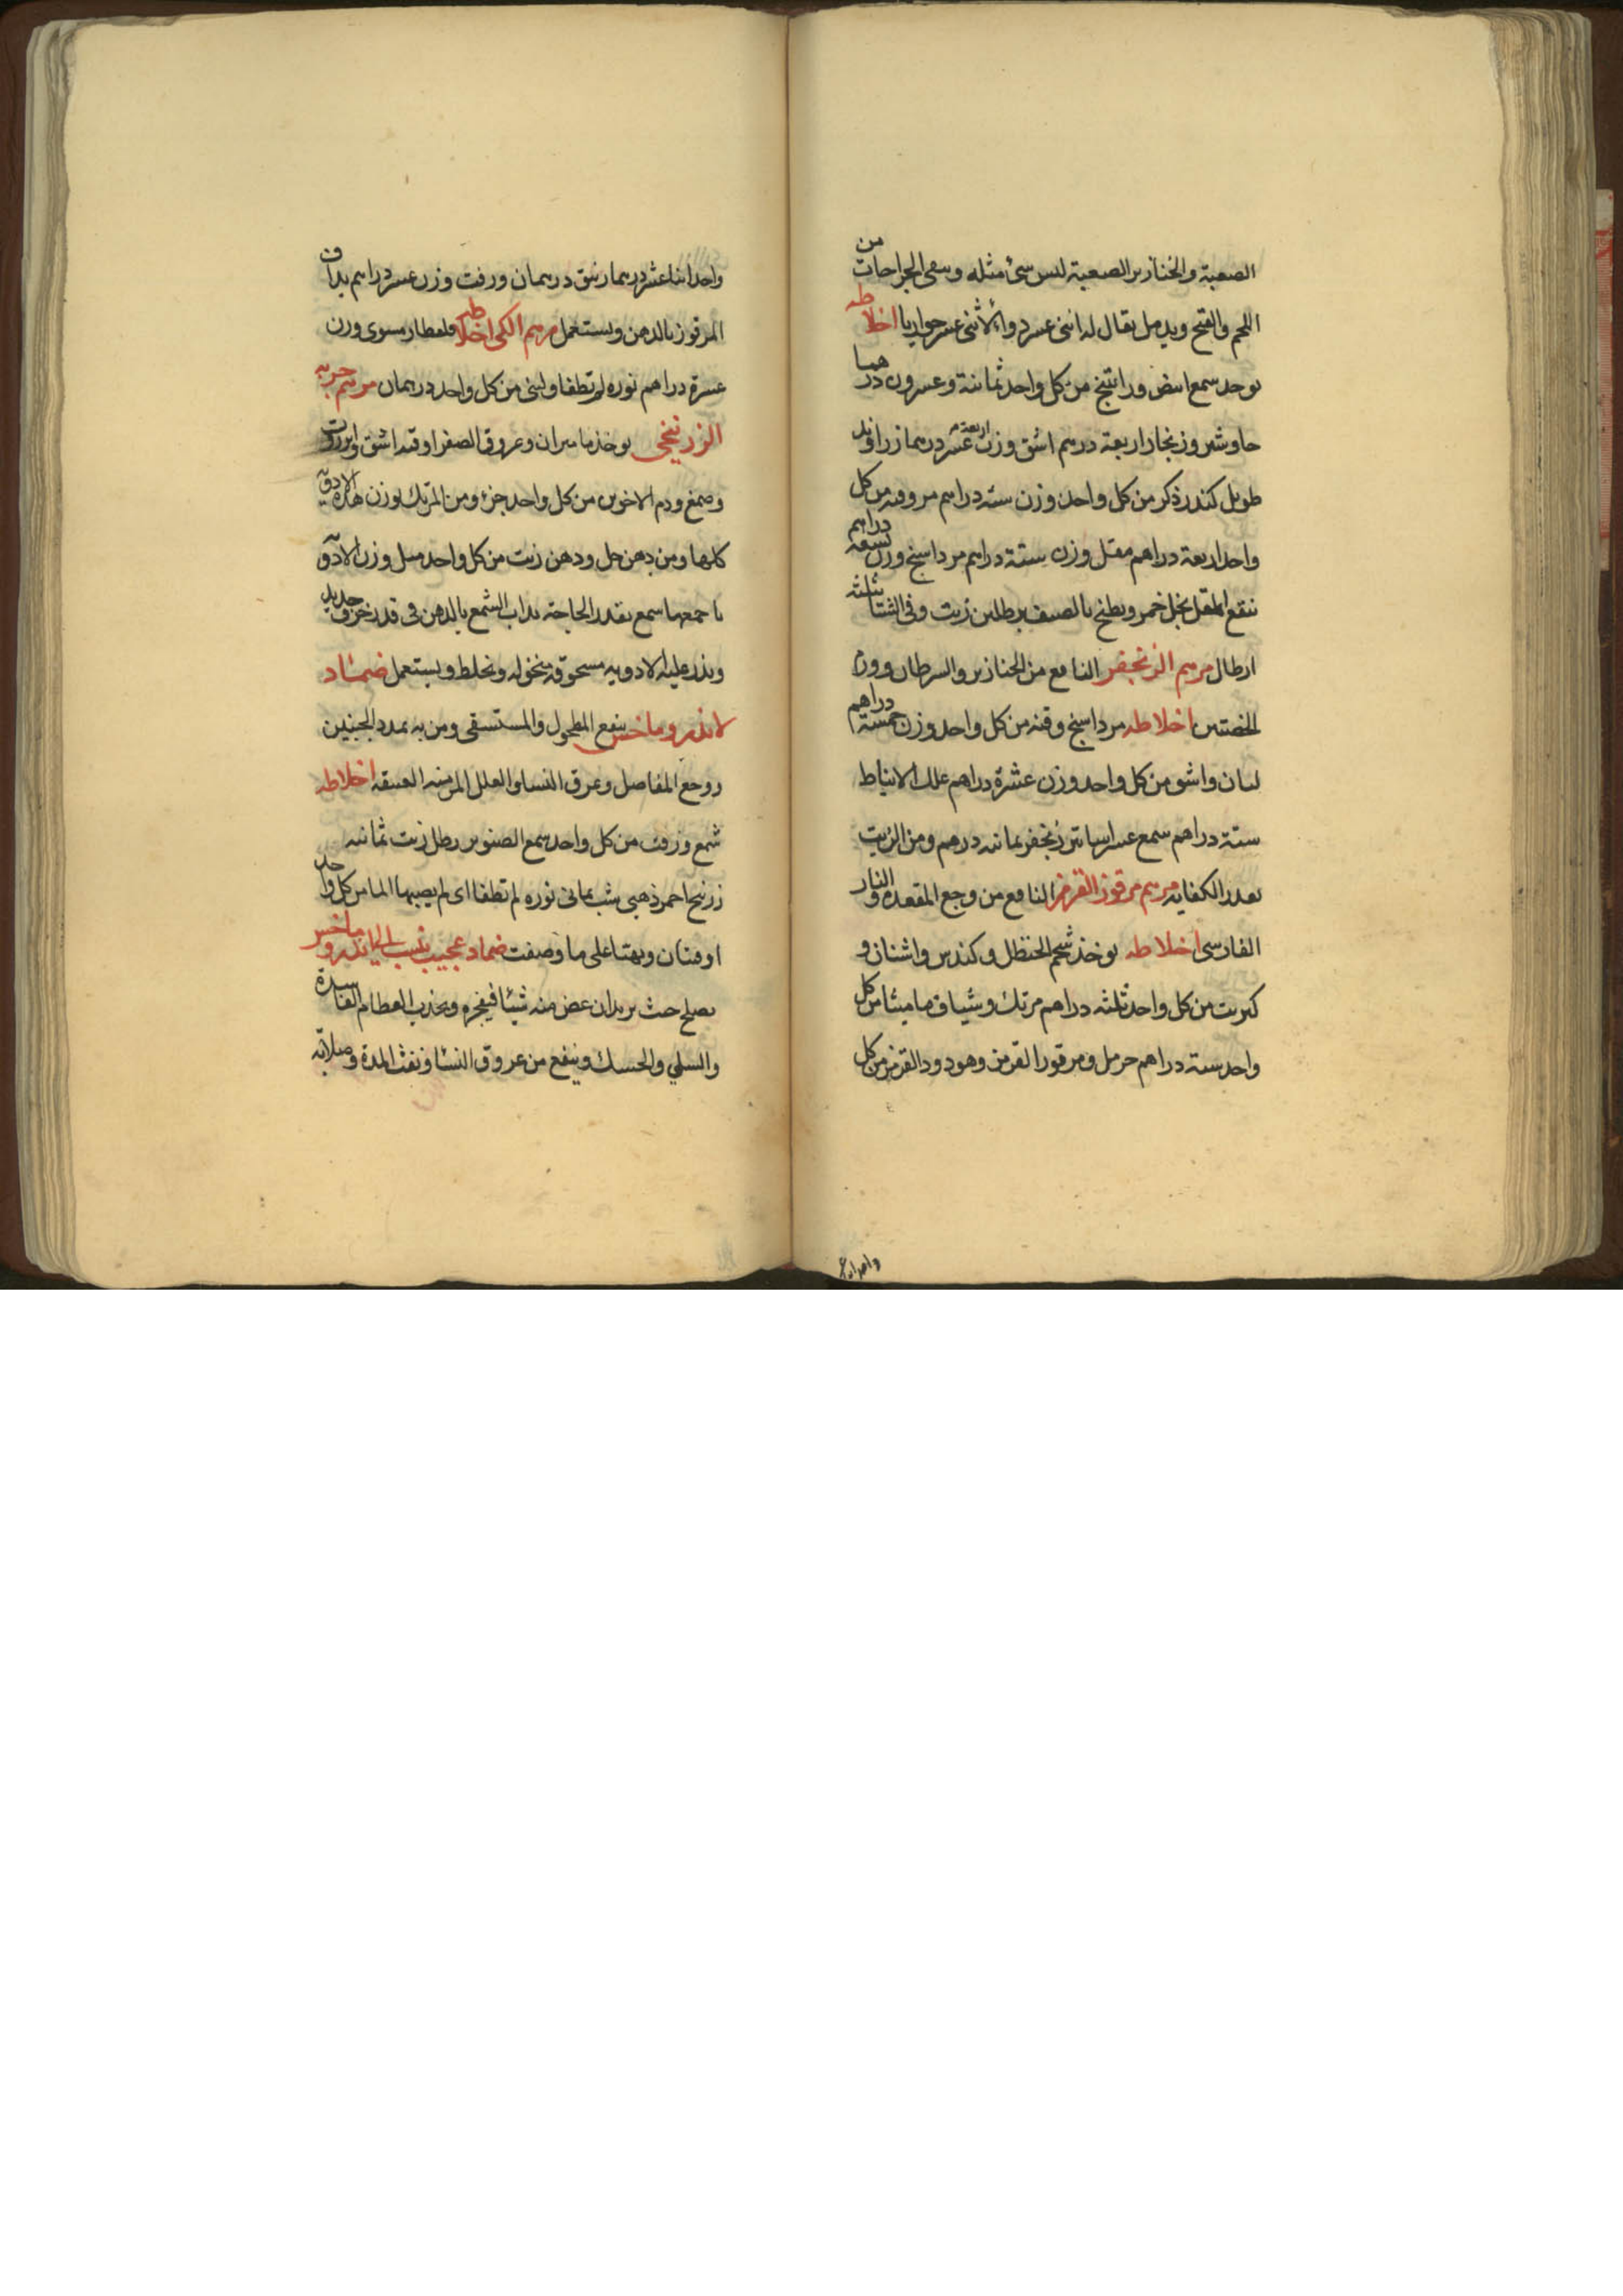 الصعبة والخنازير الصعبة ليس شئ مثله وينقى الجراحات من
اللحم والقيح ويدمل يقال له اثنى عشر دواء لاثنى عشر حواريا اخلاطه
يوخذ شمع ابيض وراتينج من كل واحد ثمانية وعشرون درهما
جاوشير وزنجار اربعة درهم اشق وزن اربعة عشر درهما زراوند
طويل كندر ذكر من كل واحد وزن ستة دراهم مر وقنه من كل
واحد اربعة دراهم مقل وزن ستة دراهم مرداسنج وزن تسعة دراهم
ينقع المقل بخل خمر ويطبخ بالصيف برطلين زيت وفى الشتا بثلثة
ارطال مرهم الزنجفر النافع من الخنازير والسرطان وورم
الخصيتين اخلاطه مرداسنج وقنه من كل واحد وزن خمسة دراهم
لبان واشق من كل واحد وزن عشرة دراهم علك الانباط
ستة دراهم شمع عشر زنجفر ثمانيه درهم ومن الزيت
بقدر الكفايه مرهم مرقوز القرمز النافع من وجع المقعده والنار
الفارسى اخلاطه يوخذ شحم الحنظل وكندس واشنان و
كبريت من كل واحد ثلثه دراهم مرتك وشياف ماميثا من كل
واحد سته دراهم حرمل ومرقوز القرمز وهو دود القرمز من كل
واحد اثنا ع
واحد اثنا عشر درهما زيبق درهمان وزفت وزن عشر دراهم يداف
المرقوز بالدهن ويستعمل مرهم الكى اخلاطه قلقطار مشوى وزن
عشرة دراهم نوره لم تطفا ولبنى من كل واحد درهمان مرهم حربه
الزرنيخى يوخذ ماميران وعروق الصفر اوقيه اشق وانزروت
وصمغ ودم الاخوين من كل واحد جزء ومن المرتك بوزن هذه الادويه
كلها ومن دهن حل ودهن زيت من كل واحد مثل وزن الادويه
باجمعها شمع بقدر الحاجة يذاب الشمع بالدهن فى قدر خزف جديد
ويذر عليه الادويه مسحوقه منخوله ويخلط ويستعمل ضماد
لاندروماخس ينفع المطحول والمستسقى ومن به تمدد الجنبين
ووجع المفاصل وعرق النسا والعلل المزمنه العتيقه اخلاطه
شمع وزفت من كل واحد صمغ الصنوبر رطل زيت ثمانيه
زرنيخ احمر ذهبى شب يمانى نوره لم تطفا اى لم يصبها الما من كل واحد
اوقيتان ويهيا على ما وصفت ضماد عجيب ينسب الى اندروماخس
يصلح حيث يريد ان عض منه شيئا فيفجره ويجذب العظام الفاسدة
والسلى والحسك وينفع من عروق النسا ونفث المدة وصلابه